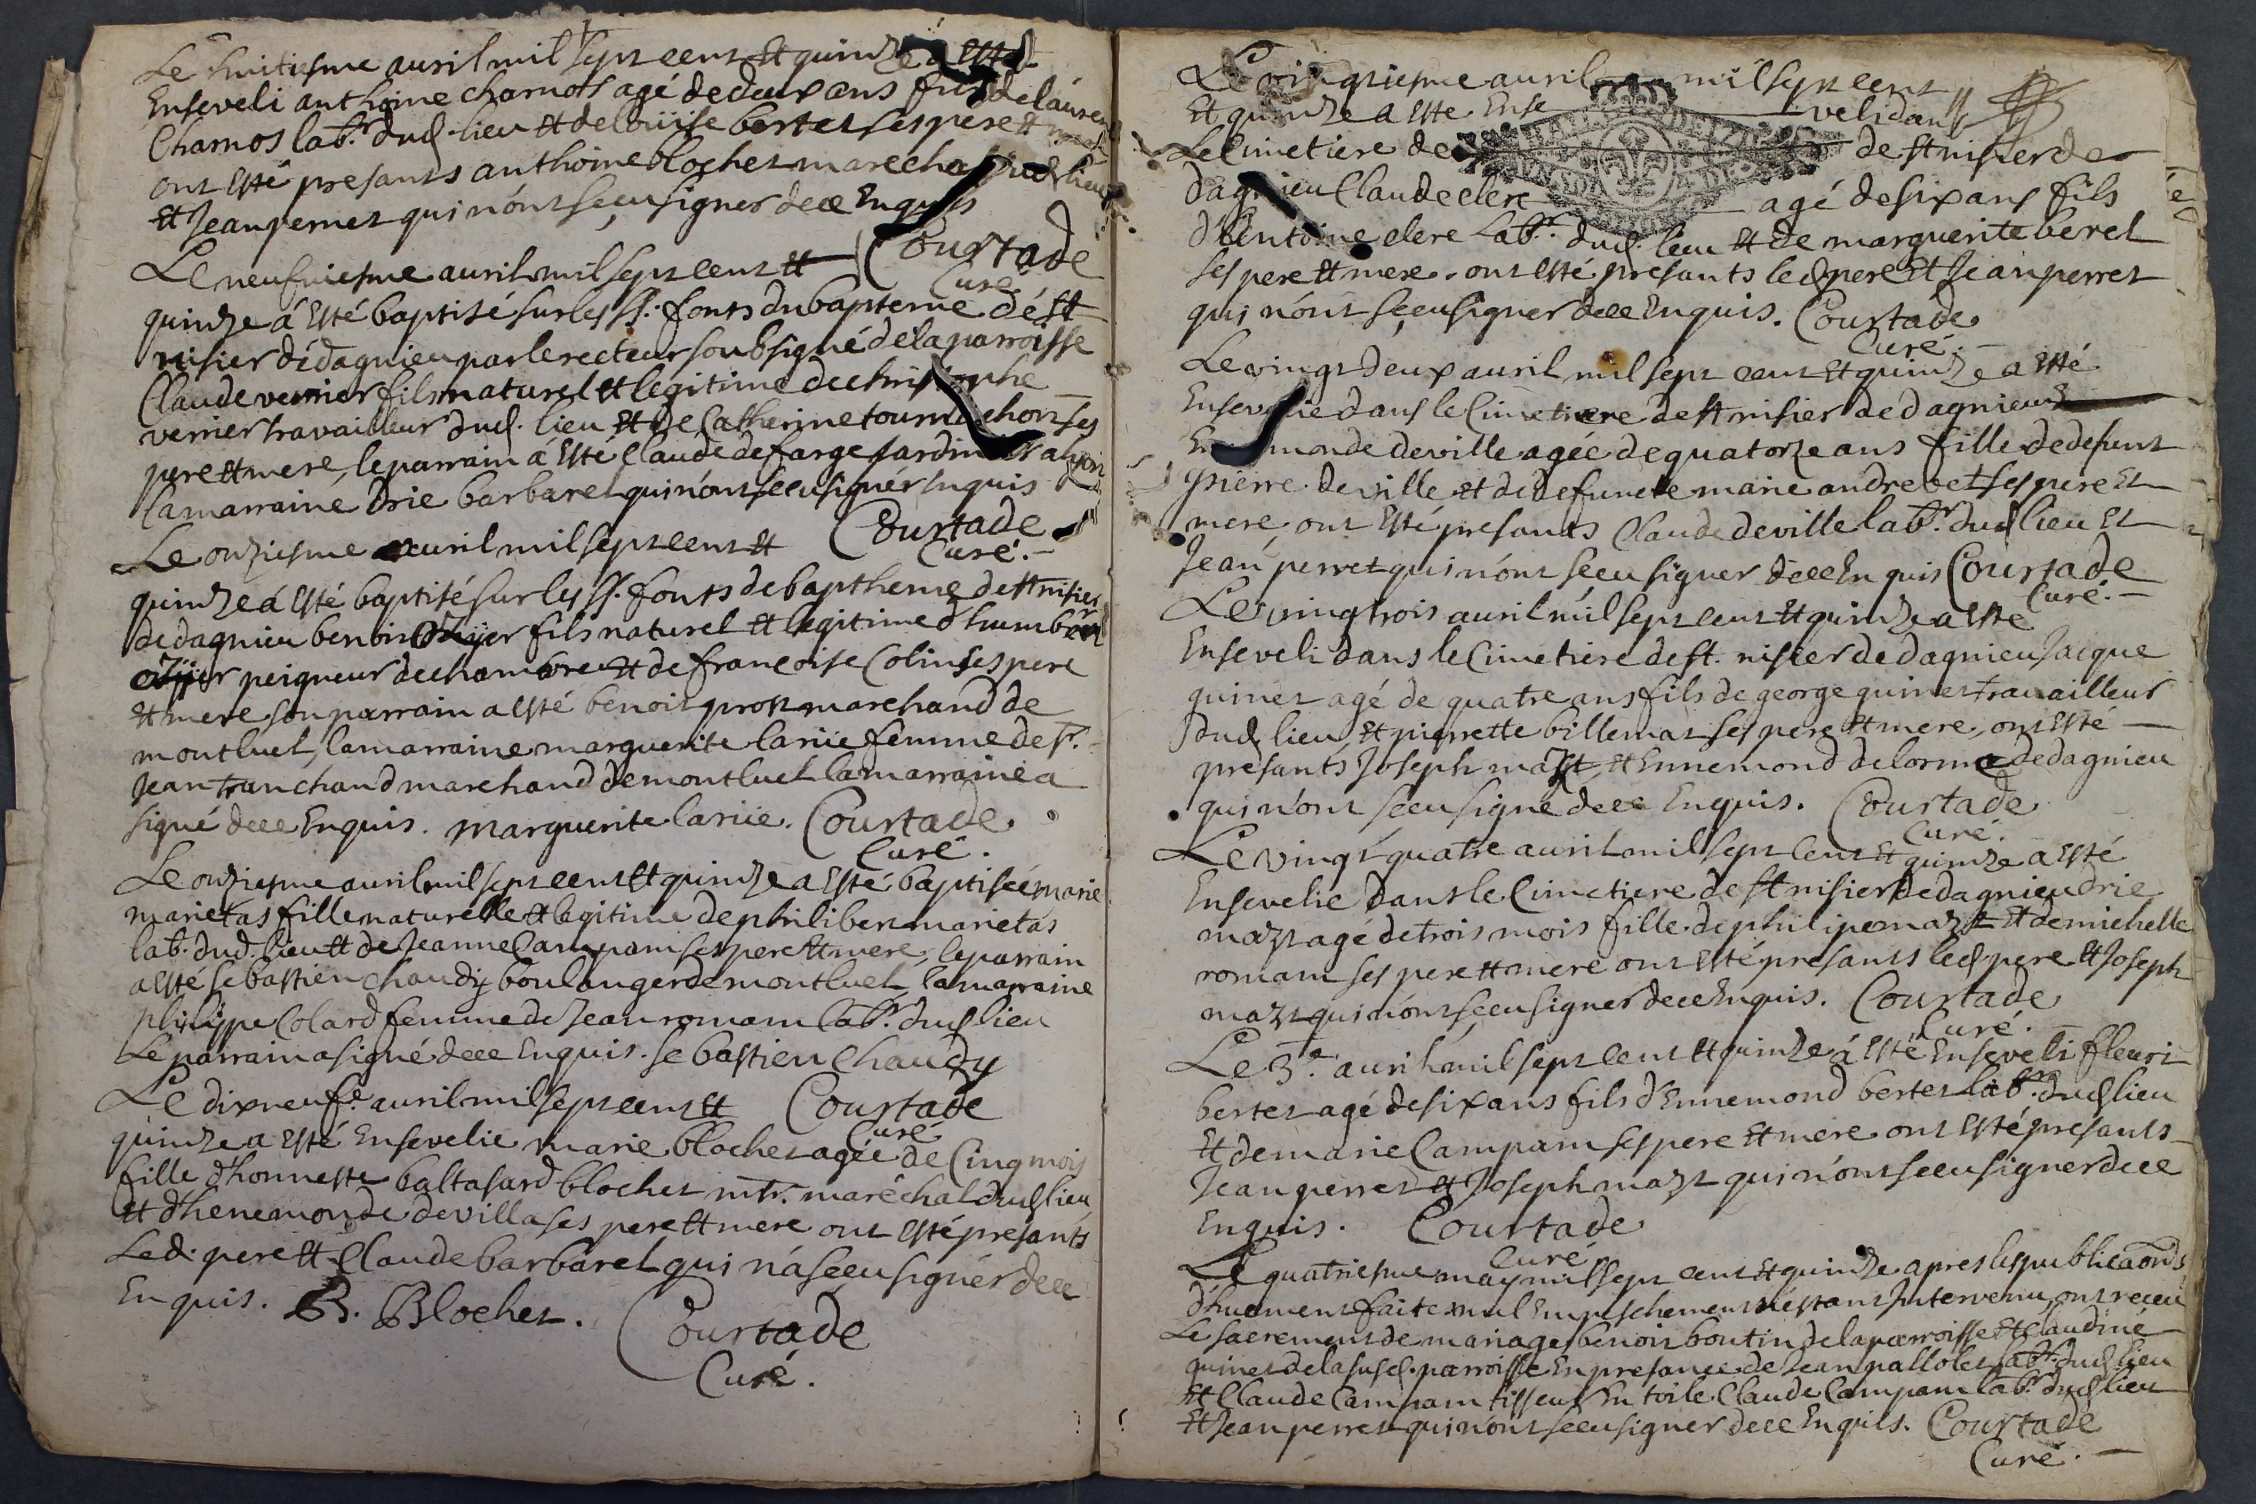 Le huitiesme auril mil sept cent et quinze a esté
Enseveli anthoine charnos agé de deux ans fils de laurent
Charnos labr. dud. lieu et de loüise bertet ses pere et mere
ont esté presants anthoine blochet marechal dud lieu
et Jean perret qui n'ont sçeu signer de ce Enquis
Courtade
Curé
Le neufuiesme auril mil sept cent et
quinze á esté baptisé sur les ss. fonts du bapteme de st
nisier de dagnieu par le recteur soubsigné de la parroisse
Claude verrier fils naturel et legitime de christophe
verrier travailleur dud. lieu et de Catherine tournachon ses
pere et mere, le parrain á esté Claude defarge Jardinier a lyon
la marraine Drie barbaret qui n'ont sceu signér Enquis
Courtade
Curé.
Le onziesme auril mil sept cent et
quinze á esté baptisé sur les ss. fonts de baptheme de st nisier
de dagnieu benoit ozier fils naturel et legitime d'humbert
ozier peigneur de chambre et de francoise Colin ses pere
et mere son parrain a esté benoit prost marchand de
montluel, la marraine marguerite larüe femme de sr.
Jean tranchand marchand de montluel la marraine a
signé de ce Enquis. marguerite larüe. Courtade
Curé.
Le onziesme auril mil sept cent et quinze a esté baptisée marie
marietas fille naturelle et legitime de philibert marietas
labr. dud. lieu et de Jeanne Campam ses pere et mere, le parrain
a esté sebastien chaudy boulanger de montluel, la marraine
philippe Colard femme de Jean romam labr. dud lieu
Le parrain a signé de ce Enquis. sebastien chaudy
Courtade
Curé
Le dixneufe. auril mil sept cent et
quinze a esté Ensevelie marie blochet agée de Cinq mois
fille d'honneste baltasard blochet mtr. maréchal dud lieu
et d'henemonde devilla ses pere et mere ont esté présants
Led. pere et Claude barbaret qui n'a sçeu signér de ce
Enquis. B. Blochet. Courtade
Curé.
Le vingtiesme auril mil sept cent
Et quinze a esté Ense veli dans
Le Cimetiere de de st nisier de
dagnieu Claude clerc agé de six ans fils
d'Antoine clerc labr. dud. lieu et de marguerite beret
ses pere et mere. ont esté présants led pere et Jean perret
qui n'ont sçeu signer de ce Enquis. Courtade
Curé.
Le vingt deux auril mil sept cent et quinze a esté
Ensevelie dans le Cimetiere de st nisier de dagnieu
En monde deville agée de quatorze ans fille de defunt
pierre deville et de defuncte marie andrevet ses pere et
mere, ont esté présants Claude deville labr. dud lieu et
Jean perret qui n'ont sçeu signer de ce Enquis Courtade
Curé.
Le vingt trois auril mil sept cent et quinze a esté
Enseveli dans le Cimetiere de st. nisier de dagnieu Jacque
guinet agé de quatre ans fils de george guinet travailleur
dud. lieu, et pierrette billemas ses pere et mere, ont esté
présants Joseph mazt, et Ennemond delorme de dagnieu
qui n'ont sceu signé de ce Enquis. Courtade
Curé.
Le vingt quatre auril mil sept Cent et quinze a esté
Ensevelie dans le Cimetiere de st nisier de dagnieu drie
mazt agé de trois mois fille de philipe mazt et de michelle
romam ses pere et mere ont esté présants led. pere et Joseph
mazt qui n'ont sceu signer de ce Enquis. Courtade
Curé.
Le 3e. auril mil sept cent et quinze á esté Enseveli fleuri
bertet agé de six ans fils d'Ennemond bertet labr. dud lieu
Et de marie Campam ses pere et mere ont esté présants
Jean perret et Joseph mazt qui n'ont sceu signer de ce
Enquis. Courtade
Curé
Le quatriesme may mil sept cent et quinze apres les publicaons
dhuement faite nul Empeschement n'estant Intervenu, ont reçeu
Le sacrement de mariage benoit boutin de la parroisse et Claudine
guinet de la susd. parroisse En presance de Jean pallolet labr. dud lieu
Et Claude Campam tisseur En toile Claude Campam labr. dud lieu
Et Jean perret qui n'ont sceu signer de ce Enquis. Courtade
Curé.